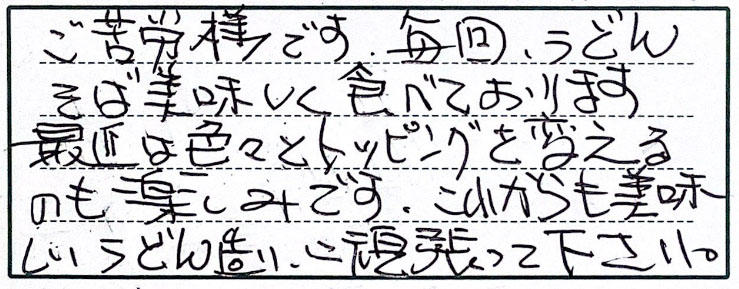 ご苦労様です。毎回、うどん
そば美味しく食べております
最近は色々とトッピングを変える
のも楽しみです。これからも美味
しいうどん造りに頑張って下さい。